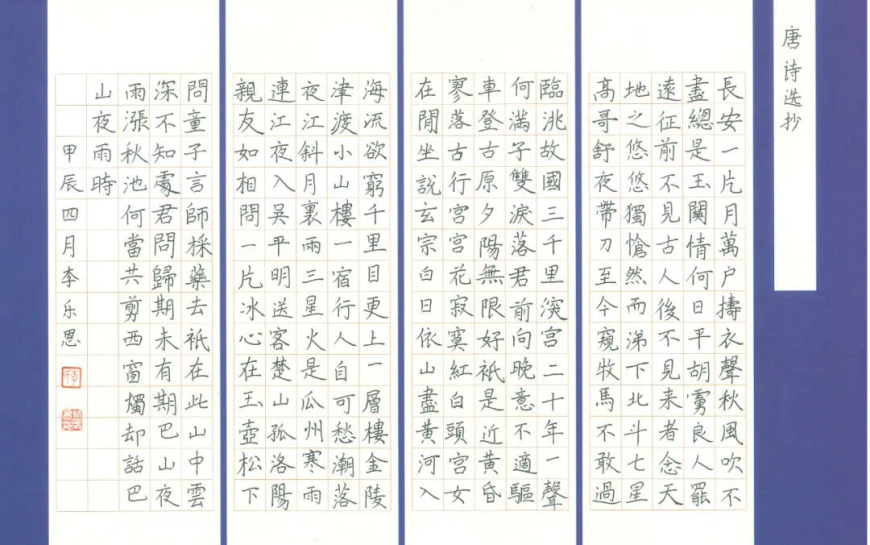 唐诗选抄
長安一片月萬户擣衣聲秋風吹不
盡總是玉関情何日平胡虜良人罷
遠征前不見古人後不見来者念天
地之悠悠獨愴然而涕下北斗七星
高哥舒夜帶刀至今窺牧馬不敢過
臨洮故國三千里深宫二十年一聲
何滿子雙淚落君前向晚意不適驅
車登古原夕陽無限好衹是近黄昏
寥落古行宫宫花寂寞紅白頭宫女
在閒坐説玄宗白日依山盡黄河入
海流欲窮千里目更上一層樓金陵
津渡小山樓一宿行人自可愁潮落
夜江斜月裏兩三星火是瓜州寒雨
連江夜入吴平明送客楚山孤洛陽
親友如相問一片冰心在玉壺松下
問童子言師採藥去衹在此山中雲
深不知處君問歸期未有期巴山夜
雨漲秋池何當共剪西窗燭却話巴
山夜雨時
甲辰四月李乐恩